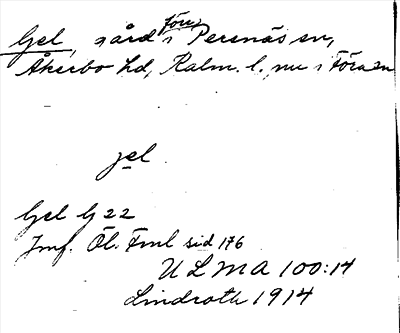 Gel, gård i förr Persnäs sn,
Åkerbo hd, Kalm. l. nu i Föra sn
jel
Gel G 22
Jmf. Öl. Fml sid 176
ULMA 100:14
Lindroth 1914